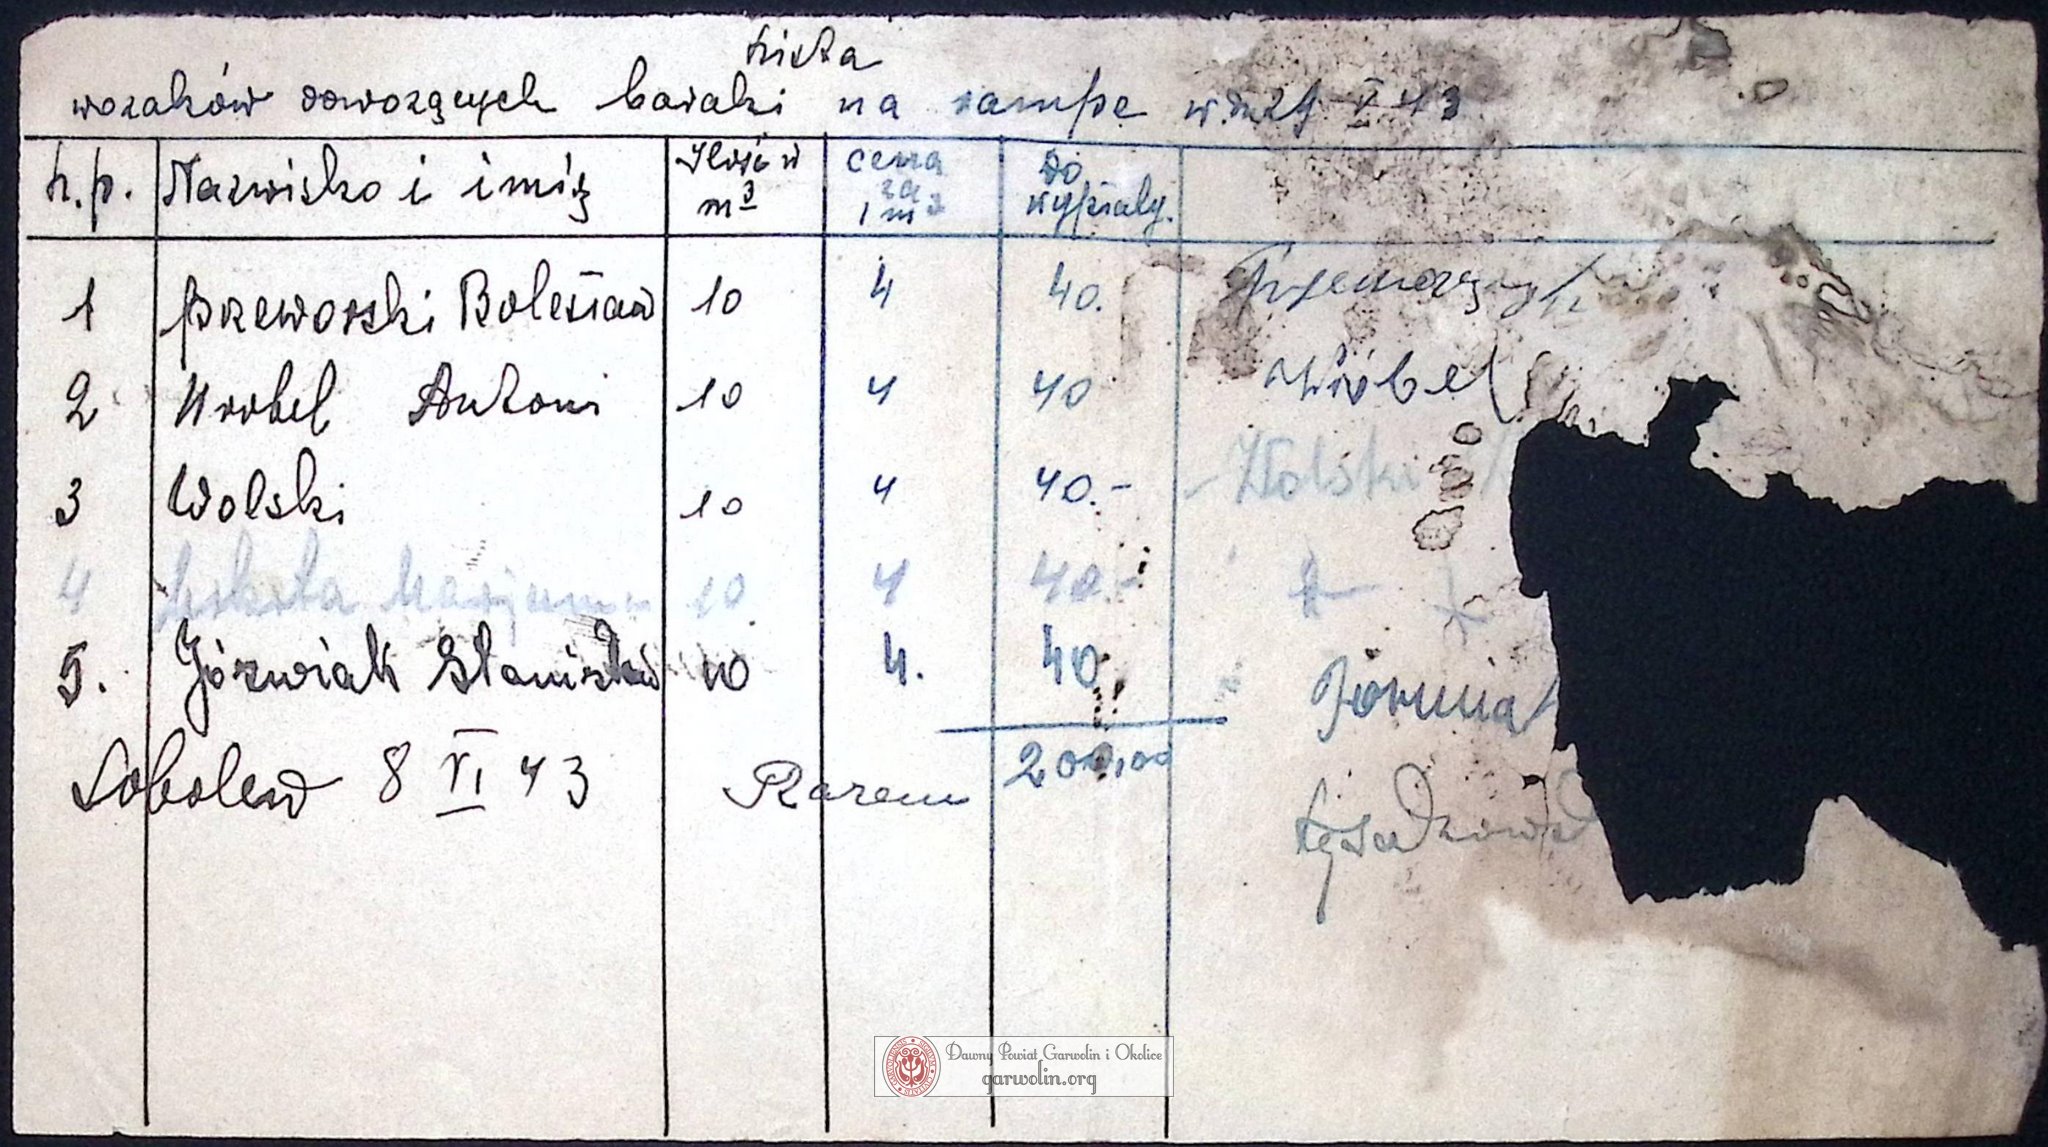 Lista
wozaków dowożących baraki na rampę w dn 29 V 43
L.p. Nazwisko i imię Ilość w m3 cena za 1 m3 do wypłaty.
1 Bolesław 10 4 40.
2 Wrobel Antoni 10 4 40 Wróbel
3 Wolski 10 4 40.- Wolski
4 10 4 40.-
5. Józwiak Stanisław 10 4. 40
Sobolew 8 VI 43 Razem 200,00
Dawny Powiat Garwolin i Okolice
garwolin.org